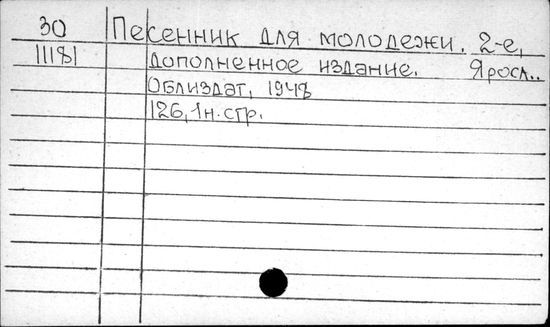 30 Песенник для молодежи. 2-е,
11181 дополненное издание. Яросл..
Облиздат, 1948
126, 1н. стр.